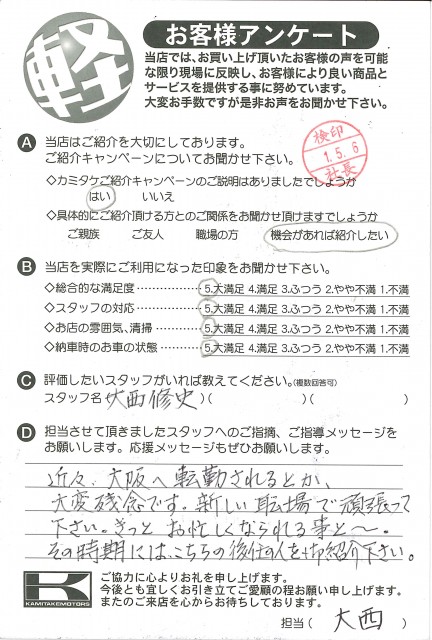 軽
お客様アンケート
当店では、お買い上げ頂いたお客様の声を可能
な限り現場に反映し、お客様により良い商品と
サービスを提供する事に努めています。
大変お手数ですが是非お声をお聞かせ下さい。
A 当店はご紹介を大切にしております。
ご紹介キャンペーンについてお聞かせ下さい。
検印
1.5.6
社長
◇カミタケご紹介キャンペーンのご説明はありましたでしょうか
はい いいえ
◇具体的にご紹介頂ける方とのご関係をお聞かせ頂けますでしょうか
ご親族 ご友人 職場の方 機会があれば紹介したい
B 当店を実際にご利用になった印象をお聞かせ下さい。
◇総合的な満足度・・・・・・・・・・5.大満足 4.満足 3.ふつう 2.やや不満 1.不満
◇スタッフの対応・・・・・・・・・・5.大満足 4.満足 3.ふつう 2.やや不満 1.不満
◇お店の雰囲気、清掃・・・・・・5.大満足 4.満足 3.ふつう 2.やや不満 1.不満
◇納車時のお車の状態・・・・・・5.大満足 4.満足 3.ふつう 2.やや不満 1.不満
C 評価したいスタッフがいれば教えてください。(複数回答可)
スタッフ名(大西修史)( )( )
D 担当させて頂きましたスタッフへのご指摘、ご指導メッセージを
お願いします。応援メッセージもぜひお願いします。
近々、大阪へ転勤されるとか、
大変残念です。新しい職場で頑張って
下さい。きっと お忙しくなられる事と〜。
その時期には、こちらの後任の人を御紹介下さい。
K
KAMITAKEMOTORS
ご協力に心よりお礼を申し上げます。
今後とも宜しくお引き立てご愛顧の程お願い申し上げます。
またのご来店を心からお待ちしております。
担当( 大西 )